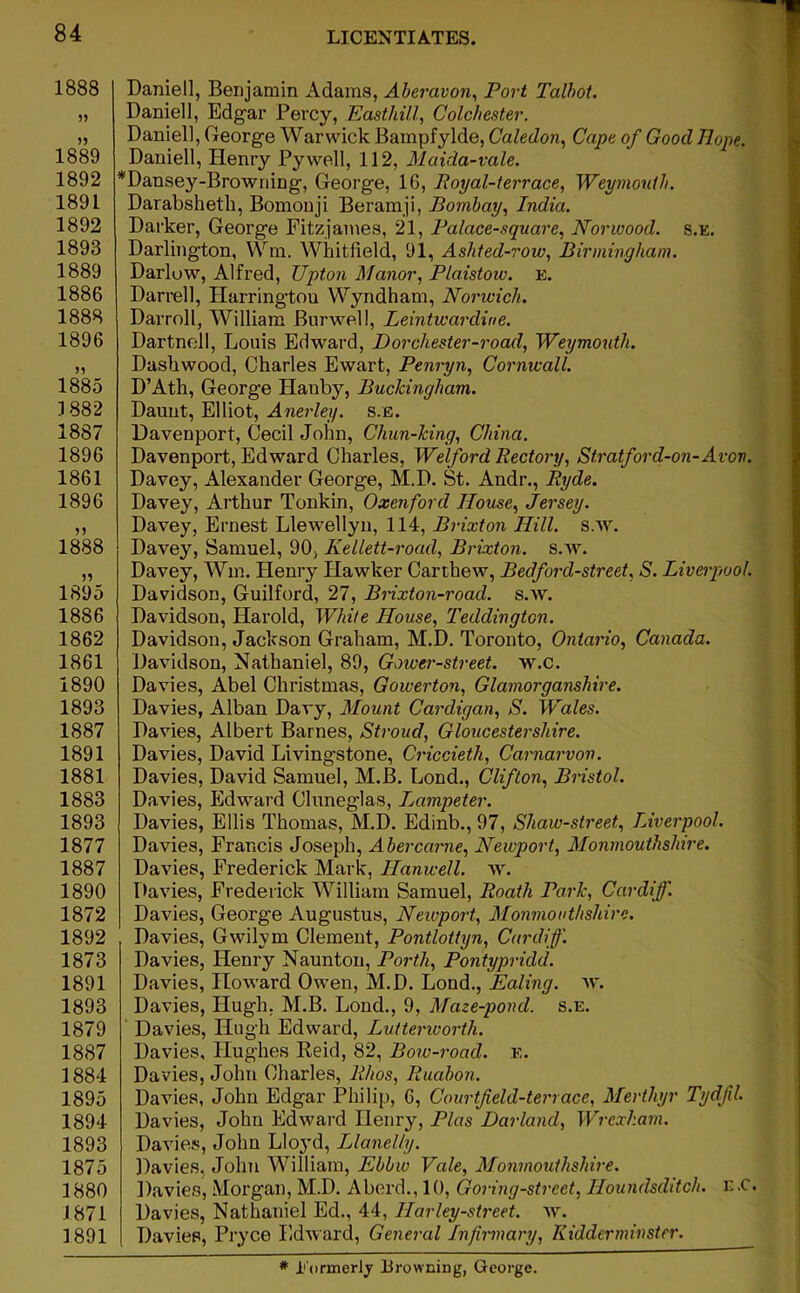 84 LICENTIATES.
1888 Daniell, Benjamin Adams, Aberavon, Port Talbot.
„ Daniell, Edgar Percy, Easthill, Colchester.
„ Daniell, George Warwick Bampfylde, Caledon, Cape of Good Hope.
1889 Daniell, Henry Pywell, 112, Maida-vale.
1892 *Dansey-Browning, George, 16, Royal-terrace, Weymouth.
1891 Darabsheth, Bomonji Beramji, Bombay, India.
1892 Darker, George Fitzjames, 21, Palace-square, Norwood. S.E.
1893 Darlington, Wm. Whitfield, 91, Ashted-row, Birmingham.
1889 Darlow, Alfred, Upton Manor, Plaistow. E.
1886 Darrell, Harrington Wyndham, Norwich.
1888 Darroll, William Burwell, Leintwardine.
1896 Dartnell, Louis Edward, Dorchester-road, Weymouth.
„ Dashwood, Charles Ewart, Penryn, Cornwall.
1885 D'Ath, George Hanby, Buckingham.
1882 Daunt, Elliot, Anerley. S.E.
1887 Davenport, Cecil John, Chun-king, China.
1896 Davenport, Edward Charles, Welford Rectory, Stratford-on-Avon.
1861 Davey, Alexander George, M.D. St. Andr., Ryde.
1896 Davey, Arthur Tonkin, Oxenford House, Jersey.
„ Davey, Ernest Llewellyn, 114, Brixton Hill. S.W.
1888 Davey, Samuel, 90, Kellett-road, Brixton. S.W.
„ Davey, Wm. Henry Hawker Carthew, Bedford-street, S. Liverpool.
1895 Davidson, Guilford, 27, Brixton-road. S.W.
1886 Davidson, Harold, White House, Teddington.
1862 Davidson, Jackson Graham, M.D. Toronto, Ontario, Canada.
1861 Davidson, Nathaniel, 89, Gower-street. W.C.
1890 Davies, Abel Christmas, Gowerton, Glamorganshire.
1893 Davies, Alban Davy, Mount Cardigan, S. Wales.
1887 Davies, Albert Barnes, Stroud, Gloucestershire.
1891 Davies, David Livingstone, Criccieth, Carnarvon.
1881 Davies, David Samuel, M.B. Lond., Clifton, Bristol.
1883 Davies, Edward Cluneglas, Lampeter.
1893 Davies, Ellis Thomas, M.D. Edinb., 97, Shaw-street, Liverpool.
1877 Davies, Francis Joseph, Abercarne, Newport, Monmouthshire.
1887 Davies, Frederick Mark, Hanwell. W.
1890 Davies, Frederick William Samuel, Roath Park, Cardiff.
1872 Davies, George Augustus, Newport, Monmouthshire.
1892 Davies, Gwilym Clement, Pontlottyn, Cardiff.
1873 Davies, Henry Naunton, Porth, Pontypridd.
1891 Davies, Howard Owen, M.D. Lond., Ealing. W.
1893 Davies, Hugh, M.B. Lond., 9, Maze-pond. S.E.
1879 Davies, Hugh Edward, Lutterworth.
1887 Davies, Hughes Reid, 82, Bow-road. E.
1884 Davies, John Charles, Rhos, Ruabon.
1895 Davies, John Edgar Philip, 6, Courtfield-terrace, Merthyr Tydfil.
1894 Davies, John Edward Henry, Plas Darland, Wrexham.
1893 Davies, John Lloyd, Llanelly.
1875 Davies, John William, Ebbw Vale, Monmouthshire.
1880 Davies, Morgan, M.D. Aberd., 10, Goring-street, Houndsditch. E.C.
1871 Davies, Nathaniel Ed., 44, Harley-street. W.
1891 Davies, Pryce Edward, General Infirmary, Kidderminster.
* Formerly Browning, George.